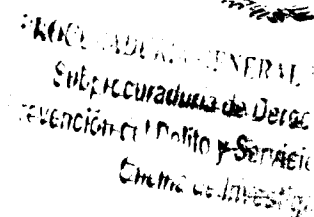 PROCURADURIA GENERAL
Subprocuraduria de Derec
revención del Delito y Servicio
de Investig